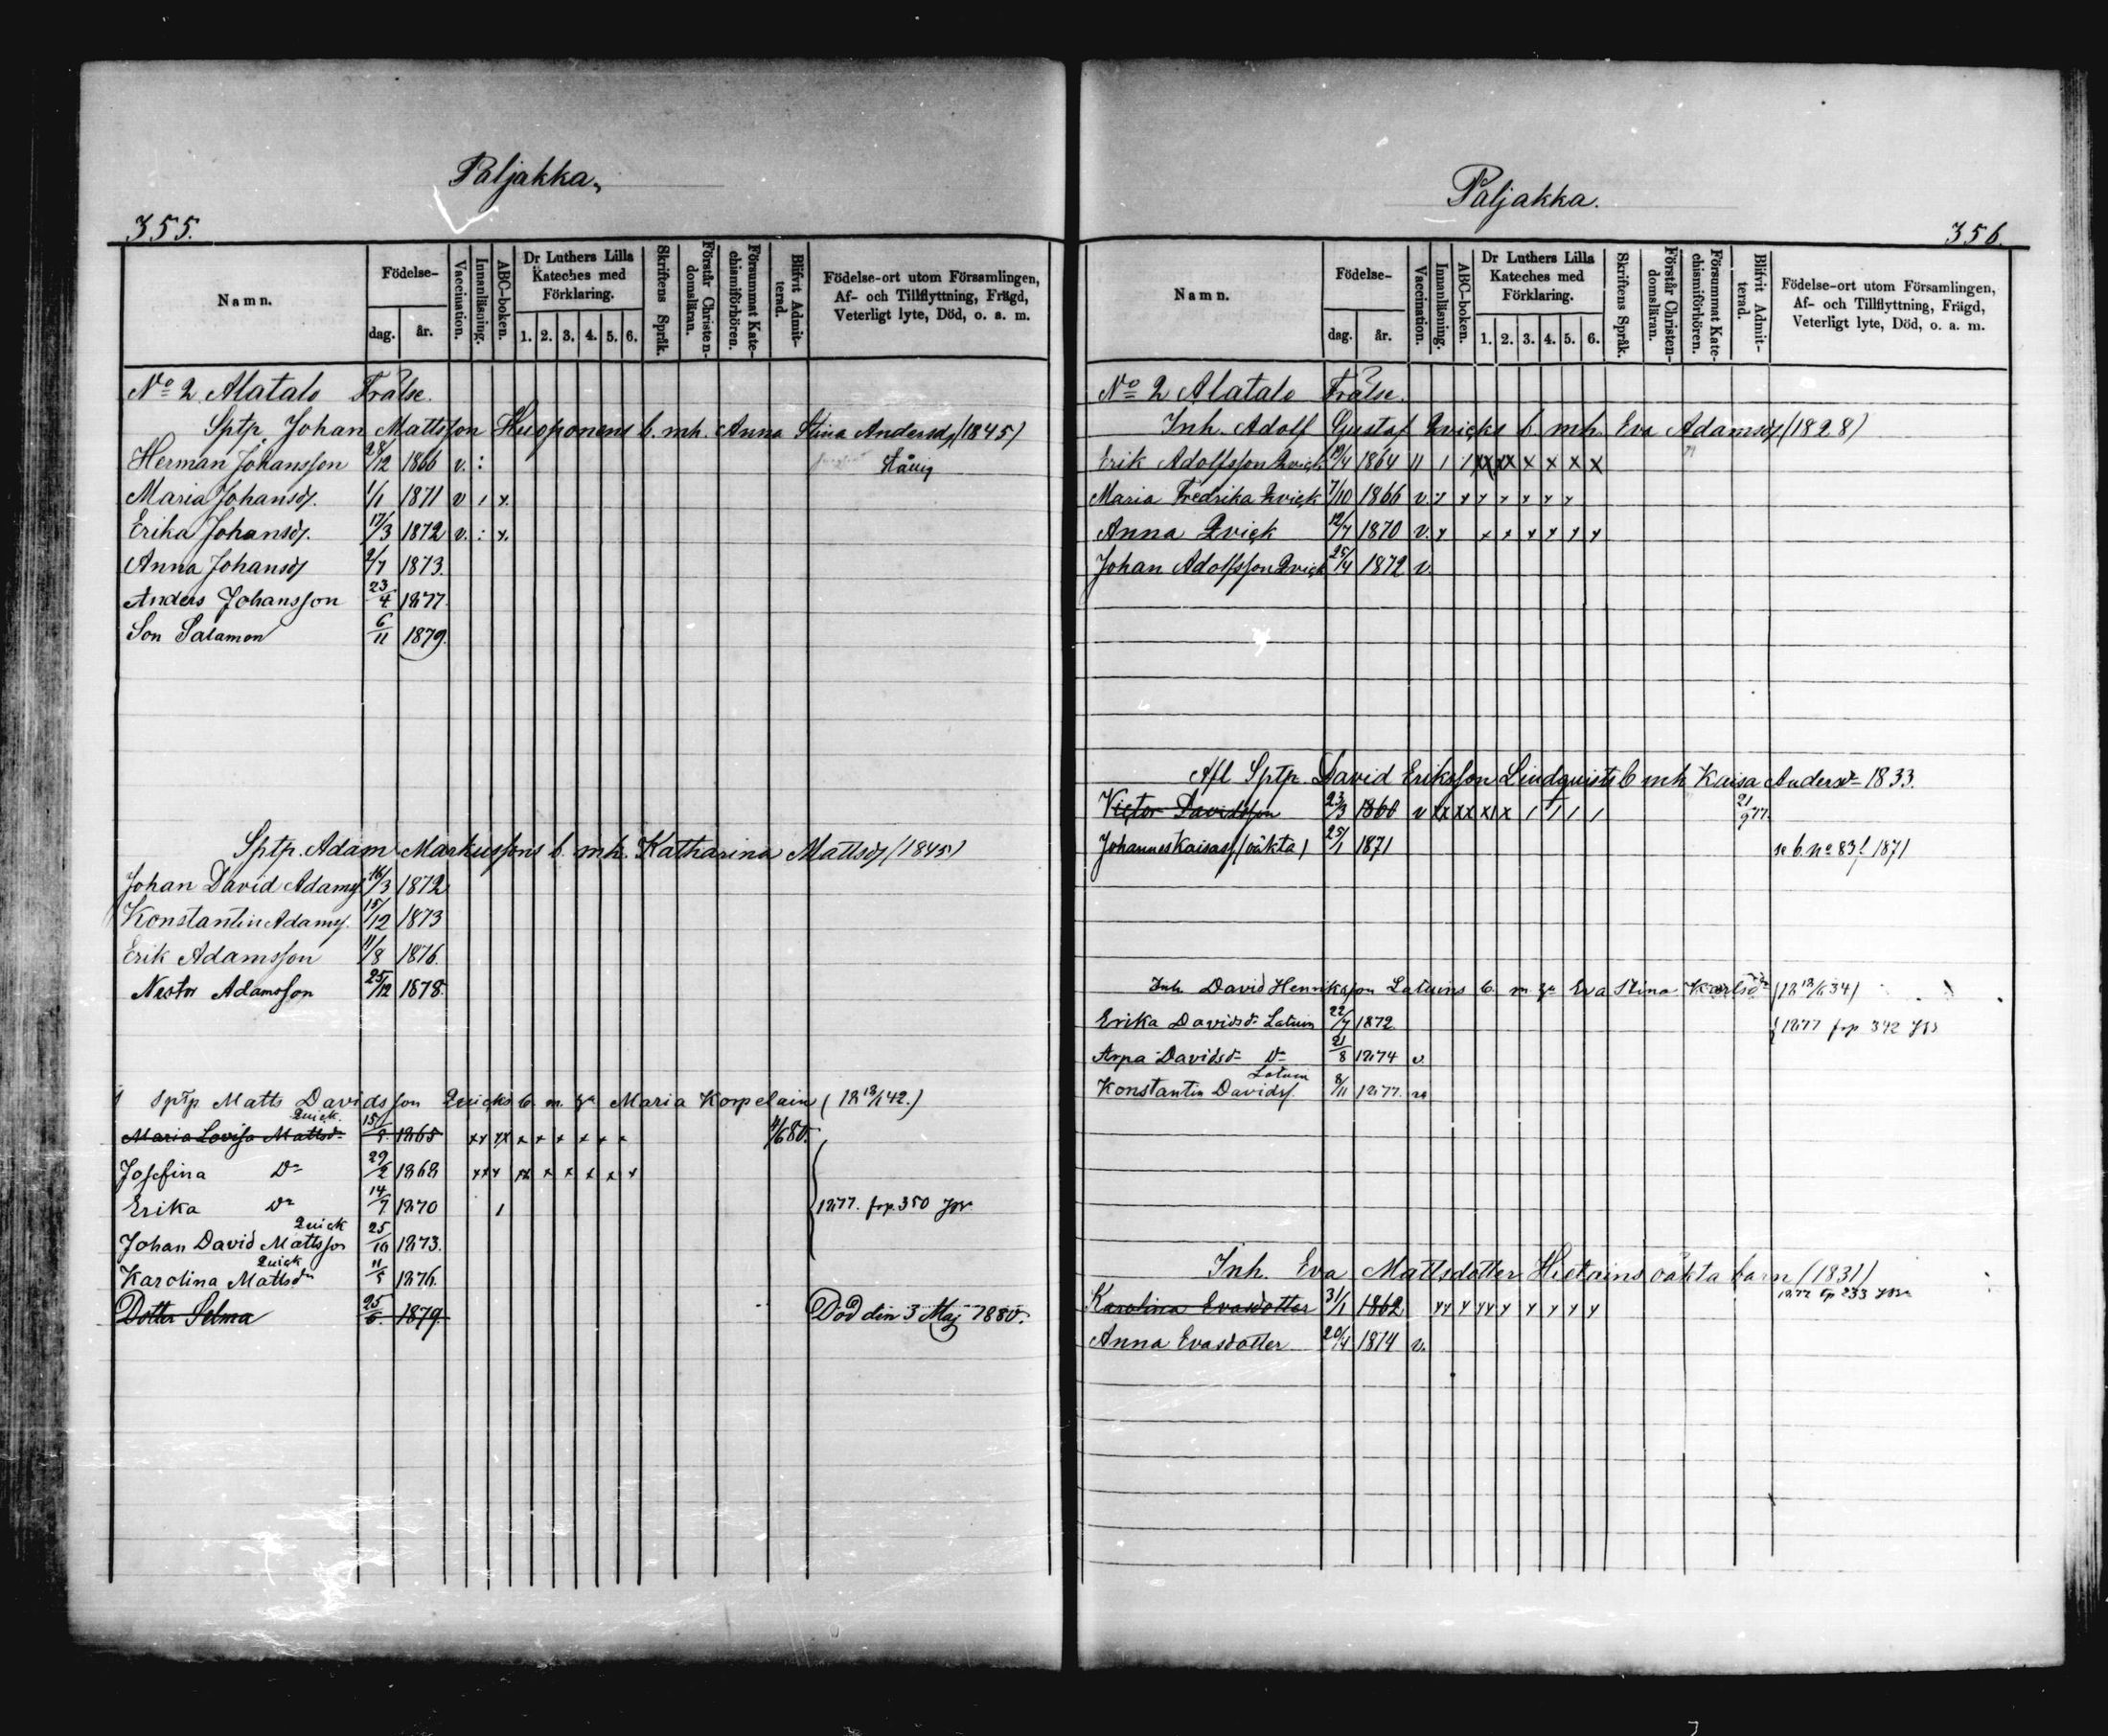 Paljakka.
355.
Namn.
Födelse-
dag. år.
Vaccination.
Innanläsning.
ABC-boken.
Dr Luthers Lilla Kateches med Förklaring.
1. 2. 3. 4. 5. 6.
Skriftens Språk.
Förstår Christendomsläran.
Försummat Katechismiförhören.
Blifvit Admitterad.
Födelse-ort utom Församlingen, Af- och Tillflyttning, Frägd, Veterligt lyte, Död, o. a. m.
No 2 Alatalo Frälse.
Sptp. Johan Mattsson Huoponens b. mh. Anna Stina Andersdr (1845)
Herman Johansson 28/12 1866 v. :
Maria Johansdr. 1/1 1871 v 1 x.
Erika Johansdr. 17/3 1872 v. : x.
Anna Johansdr 2/7 1873.
Anders Johansson 23/4 1877
Son Salamon 6/11 1879.
Sptp. Adam Markussons b. mh. Katharina Mattsdr (1845)
Johan David Adamss. 16/3 1872
Konstantin Adamss. 15/12 1873
Erik Adamsson 11/8 1876.
Nestor Adamsson 25/12 1878.
Sptp Matts Davidsson Quicks b. m. Maria Korpelain (18 42.)
Quick
Maria Lovisa Mattsdr 15/8 1865 xx xx x x x x x x 80.
Josefina Dr 29/2 1868 xx x xx x x x x x
Erika Dr 14/7 1870 1 1877. frp. 350
Quick
Johan David Mattsson 25/10 1873.
Quick
Karolina Mattsdr 11/5 1876.
Dotter Selma 25/6. 1879. Död den 3 Maj 1880.
Paljakka.
356.
Namn.
Födelse-
dag. år.
Vaccination.
Innanläsning.
ABC-boken.
Dr Luthers Lilla Kateches med Förklaring.
1. 2. 3. 4. 5. 6.
Skriftens Språk.
Förstår Christendomsläran.
Försummat Katechismiförhören.
Blifvit Admitterad.
Födelse-ort utom Församlingen, Af- och Tillflyttning, Frägd, Veterligt lyte, Död, o. a. m.
No 2 Alatalo Frälse.
Inh. Adolf Gustaf Qvicks b. mh. Eva Adamsdr (1828)
Erik Adolfsson Qvick 1864 11 1 1 xx xx x x x x
Maria Fredrika Qvick 7/10 1866 v x x x x x x x
Anna Qvick 12/7 1870 v. x x x x x x x
Johan Adolfsson Qvick 25/4 1872 v.
Afl Sptp. David Eriksson Lindquists b mh Kaisa Andersdr 1833.
Victor Davidsson 23/3 1860 v xx xx x1 x 1 1 1 1 21/9 77.
Johannes Kaisass. (oäkta) 25/1 1871 se b. no 83 f. 1871
Inh. David Henriksson Latuins b. m. Eva Stina Karlsdr (18 34)
Erika Davidsdr Latuin 22/7 1872. 1877 frp. 342
Arpa Davidsdr Dr 21/8 1874 v
Latuin
Konstantin Davidss. 8/11 1877. va
Inh. Eva Mattsdotter Hietains oäkta barn (1831)
1877 233
Karolina Evasdotter 31/1 1862. xx x xx x x x x x
Anna Evasdotter 20/4 1874 v.